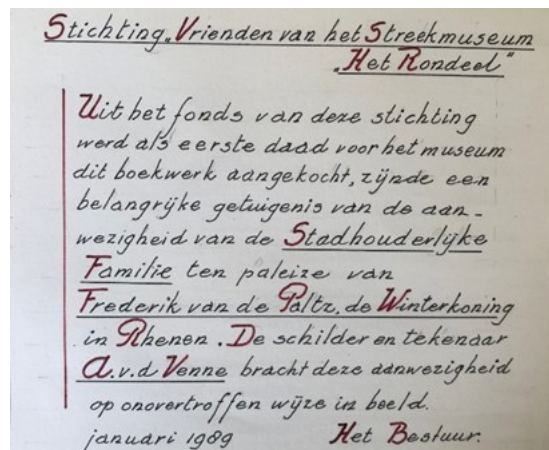 Stichting „Vrienden van het Streekmuseum
„Het Rondeel"
Uit het fonds van deze stichting
werd als eerste daad voor het museum
dit boekwerk aangekocht, zijnde een
belangrijke getuigenis van de aan-
wezigheid van de Stadhouderlijke
Familie ten paleize van
Frederik van de Paltz, de Winterkoning
in Rhenen. De schilder en tekenaar
A.v.d Venne bracht deze aanwezigheid
op onovertroffen wijze in beeld.
januari 1989 Het Bestuur.